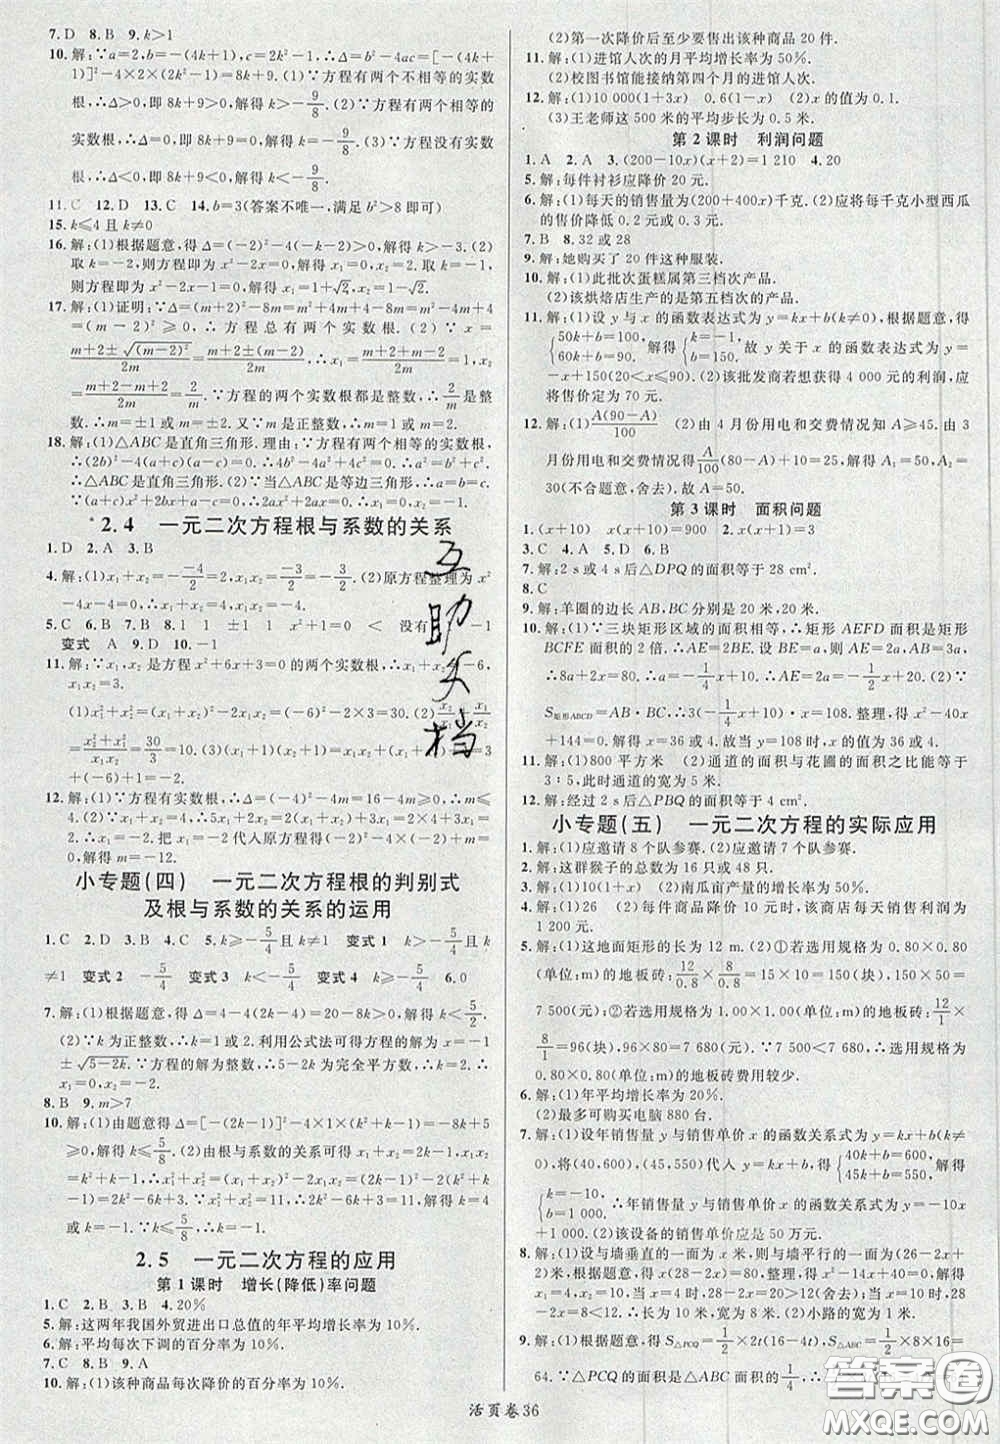 7. D 8. B 9. k>1
10. 解:(1)∵a=2,b=-(4k+1),c=2k²-1,∴Δ=b²-4ac=[-(4k+
1)]²-4×2×(2k²-1)=8k+9. (1)∵方程有两个不相等的实数
根,∴Δ>0,即8k+9>0,解得k>-9/8. (2)∵方程有两个相等的
实数根,∴Δ=0,即8k+9=0,解得k=-9/8. (3)∵方程没有实数
根,∴Δ<0,即8k+9<0,解得k<-9/8.
11. C 12. D 13. C 14. b=3(答案不唯一,满足b²>8即可)
15. k≤4且k≠0
16. 解:(1)根据题意,得Δ=(-2)²-4(-k-2)>0,解得k>-3. (2)
取k=-2,则方程即为x²-2x=0,解得x₁=0,x₂=2. 取k=-1,
则方程即为x²-2x-1=0,解得x₁=1+√2,x₂=1-√2.
17. 解:(1)证明:∵Δ=(m+2)²-8m=m²+4m+4-8m=m²-4m+4
=(m-2)²≥0,∴方程总有两个实数根. (2)∵x=
(m+2±√(m-2)²)/2m=(m+2±(m-2))/2m,∴x₁=(m+2+m-2)/2m=1,x₂=
(m+2-m+2)/2m=2/m. ∵方程的两个实数根都是整数,∴2/m是整
数,∴m=±1或m=±2. 又∵m是正整数,∴m=1或m=2.
18. 解:(1)△ABC是直角三角形. 理由:∵方程有两个相等的实数根,
∴(2b)²-4(a+c)(a-c)=0. ∴4b²-4a²+4c²=0. ∴a²=b²+c².
∴△ABC是直角三角形. (2)∵当△ABC是等边三角形,∴a=b=c.
∵(a+c)x²+2bx+a-c=0,∴2ax²+2ax=0. ∴x₁=0,x₂=-1.
2.4 一元二次方程根与系数的关系
1. D 2. A 3. B
4. 解:(1)x₁+x₂=-(-4)/2=2,x₁x₂=-3/2=-3/2. (2)原方程整理为x²
-4x-4=0,∴x₁+x₂=-(-4)=4,x₁x₂=-4.
5. C 6. B 7. B 8. 1 1 ±1 1 x²+1=0 < 没有 -1
变式 A 9. D 10. -1
11. 解:∵x₁,x₂是方程x²+6x+3=0的两个实数根,∴x₁+x₂=-6,
x₁x₂=3.
(1)x₁²+x₂²=(x₁+x₂)²-2x₁x₂=(-6)²-2×3=30. (2)x₂/x₁+x₁/x₂
=(x₂²+x₁²)/x₁x₂=30/3=10. (3)(x₁+1)(x₂+1)=x₁x₂+(x₁+x₂)+1=3
+(-6)+1=-2.
12. 解:(1)∵方程有实数根,∴Δ=(-4)²-4m=16-4m≥0,∴m≤
4. (2)∵x₁+x₂=4,∴5x₁+2x₂=2(x₁+x₂)+3x₁=2×4+3x₁
=2. ∴x₁=-2. 把x₁=-2代入原方程得(-2)²-4×(-2)+m=
0,解得m=-12.
小专题(四) 一元二次方程根的判别式
及根与系数的关系的运用
1. C 2. D 3. D 4. C 5. k≥-5/4且k≠1 变式1 k>-5/4且k
≠1 变式2 -5/4 变式3 k<-5/4 变式4 k≥-5/4 6. 0
7. 解:(1)根据题意,得Δ=4-4(2k-4)=20-8k>0,解得k<5/2.
(2)∵k为正整数,∴k=1或2. 利用公式法可得方程的解为x=-1
±√(5-2k). ∵方程的解为整数,∴5-2k为完全平方数,∴k=2. ∴
x₁=0,x₂=-2.
8. B 9. m>7
10. 解:(1)由题意得Δ=[-(2k-1)]²-4×1×(k²+k-1)=-8k+
5≥0,解得k≤5/8. (2)由根与系数的关系可得x₁+x₂=2k-1,
x₁x₂=k²+k-1,∴x₁²+x₂²=(x₁+x₂)²-2x₁x₂=(2k-1)²-
2(k²+k-1)=2k²-6k+3. ∵x₁²+x₂²=11,∴2k²-6k+3=11,
解得k=4或k=-1. ∵k≤5/8,∴k=-1.
2.5 一元二次方程的应用
第1课时 增长(降低)率问题
1. C 2. B 3. B 4. 20%
5. 解:这两年我国外贸进出口总值的年平均增长率为10%.
6. 解:平均每次下调的百分率为10%.
7. C 8. B 9. A
10. 解:(1)该种商品每次降价的百分率为10%.
(2)第一次降价后至少要售出该种商品20件.
11. 解:(1)进馆人次的月平均增长率为50%.
(2)校图书馆能接纳第四个月的进馆人次.
12. 解:(1)10 000(1+3x) 0.6(1-x) (2)x的值为0.1.
(3)王老师这500米的平均步长为0.5米.
第2课时 利润问题
1. A 2. A 3. (200-10x)(x+2)=1 210 4. 20
5. 解:每件衬衫应降价20元.
6. 解:(1)每天的销售量是(200+400x)千克. (2)应将每千克小型西瓜
的售价降低0.2元或0.3元.
7. B 8. 32或28
9. 解:她购买了20件这种服装.
10. 解:(1)此批次蛋糕属第三档次产品.
(2)该烘焙店生产的是第五档次的产品.
11. 解:(1)设y与x的函数表达式为y=kx+b(k≠0),根据题意,得
{50k+b=100, 60k+b=90. 解得{k=-1, b=150. 故y关于x的函数表达式为y=
-x+150(20<x≤90). (2)该批发商若想获得4 000元的利润,应
将售价定为70元.
12. 解:(1)A(90-A)/100 (2)由4月份用电和交费情况知A≥45. 由3
月份用电和交费情况,得A/100(80-A)+10=25,解得A₁=50,A₂=
30(不合题意,舍去). 故A=50.
第3课时 面积问题
1. (x+10) x(x+10)=900 2. x(x+10)=3
3. C 4. A 5. D 6. B
7. 解:2 s或4 s后△DPQ的面积等于28 cm².
8. C
9. 解:羊圈的边长AB,BC分别是20米,20米.
10. 解:(1)∵三块矩形区域的面积相等,∴矩形AEFD是矩形
BCFE面积的2倍. ∴AE=2BE. 设BE=a,则AE=2a,AB=3a,
∴8a+2x=80. ∴a=-1/4x+10. ∴AB=-3/4x+30. (2)∵
S矩形ABCD=AB·BC,∴(-3/4x+30)x=108. 整理,得x²-40x
+144=0. 解得x₁=36,x₂=4. 故当y=108时,x的值为36或4.
11. 解:(1)800平方米 (2)通道的面积与花圃的面积之比能等于
3:5,此时通道的宽为5米.
12. 解:经过2 s后△PBQ的面积等于4 cm².
小专题(五) 一元二次方程的实际应用
1. 解:(1)应邀请8个队参赛. (2)应邀请7个队参赛.
2. 解:这群猴子的总数为16只或48只.
3. 解:(1)(1+x) 10(1+2x) (2)南瓜亩产量的增长率为50%.
4. 解:(1)26 (2)每件商品降价10元时,该商店每天销售利润为
1 200元.
5. 解:(1)这地面矩形的长为12 m. (2)①若选用规格为0.80×0.80
(单位:m)的地板砖:12/0.8×8/0.8=15×10=150(块),150×50=
7 500(元);②若选用规格为1.00×1.00(单位:m)的地板砖:12/1×
8/1=96(块),96×80=7 680(元). ∵7 500<7 680,∴选用规格为
0.80×0.80(单位:m)的地板砖费用较少.
6. 解:(1)年平均增长率为20%.
(2)最多可购买电脑880台.
7. 解:(1)设年销售量y与销售单价x的函数关系式为y=kx+b(k≠
0),将(40,600),(45,550)代入y=kx+b,得{40k+b=600, 45k+b=550. 解得
{k=-10, b=1 000. ∴年销售量y与销售单价x的函数关系式为y=-10x
+1 000. (2)该设备的销售单价应是50万元.
8. 解:(1)设与墙垂直的一面为x米,则与墙平行的一面为(26-2x+
2)米. 根据题意,得x(28-2x)=80. 整理,得x²-14x+40=0. 解得
9. 解:(1)根据题意,得S△PCQ=1/2×2t(16-4t),S△ABC=1/2×8×16=
64. ∵△PCQ的面积是△ABC面积的1/4,∴1/2×
互助文档
答案圈
MXQE.COM
活页卷36